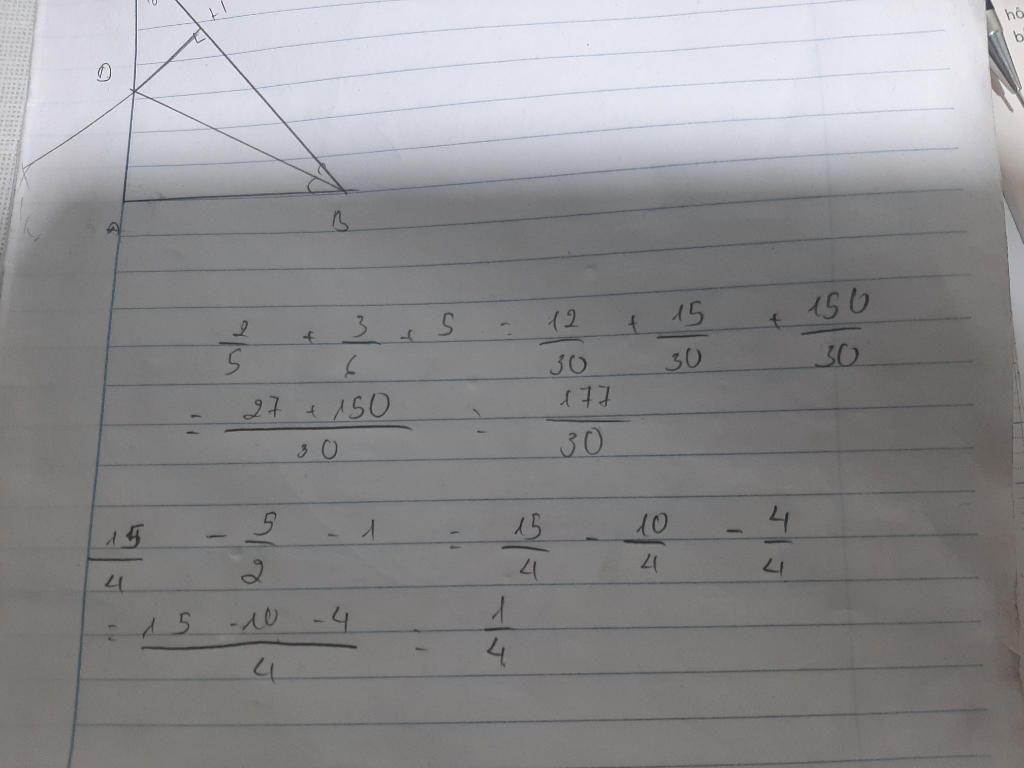 H
D
A B
2/5 + 3/6 + 5 = 12/30 + 15/30 + 150/30
= 27 + 150/30 = 177/30
15/4 - 5/2 - 1 = 15/4 - 10/4 - 4/4
= 15 - 10 - 4/4 = 1/4
hô
b